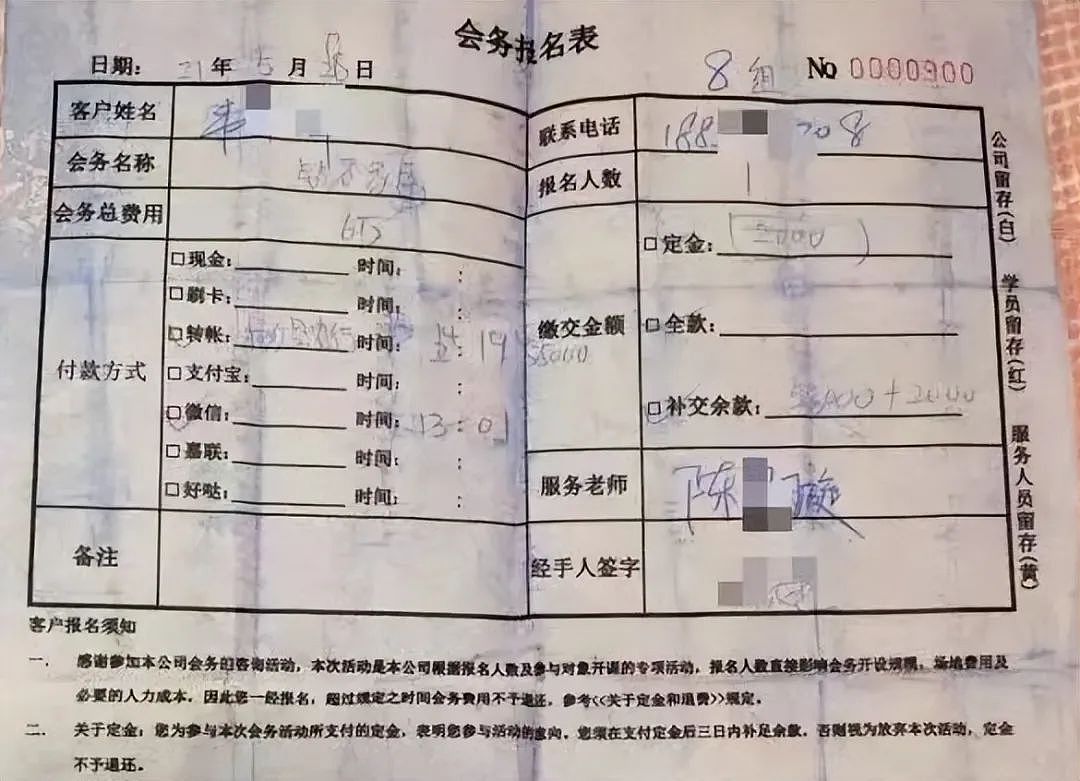 会务报名表
日期: 21 年 5 月 日
8组
No 0000900
客户姓名
联系电话 188 708
会务名称
报名人数 1
会务总费用 6万
付款方式
□现金: 时间: :
□刷卡: 时间: :
□转帐: 时间: : 19 55000
□支付宝: 时间: :
□微信: 时间: 13:01
□嘉联: 时间: :
□好哒: 时间: :
缴交金额
□定金: 5000
□全款:
□补交余款: 000+2000
服务老师 陈
备注
经手人签字
公司留存(白) 学员留存(红) 服务人员留存(黄)
客户报名须知
一. 感谢参加本公司会务的咨询活动, 本次活动是本公司根据报名人数及参与对象开课的专项活动, 报名人数直接影响会务开设规模, 场地费用及
必要的人力成本. 因此您一经报名, 超过规定之时间会务费用不予退还, 参考<<关于定金和退费>>规定.
二. 关于定金: 您为参与本次会务活动所支付的定金, 表明您参与活动的意向, 您须在支付定金后三日内补足余款, 否则视为放弃本次活动, 定金
不予退还.